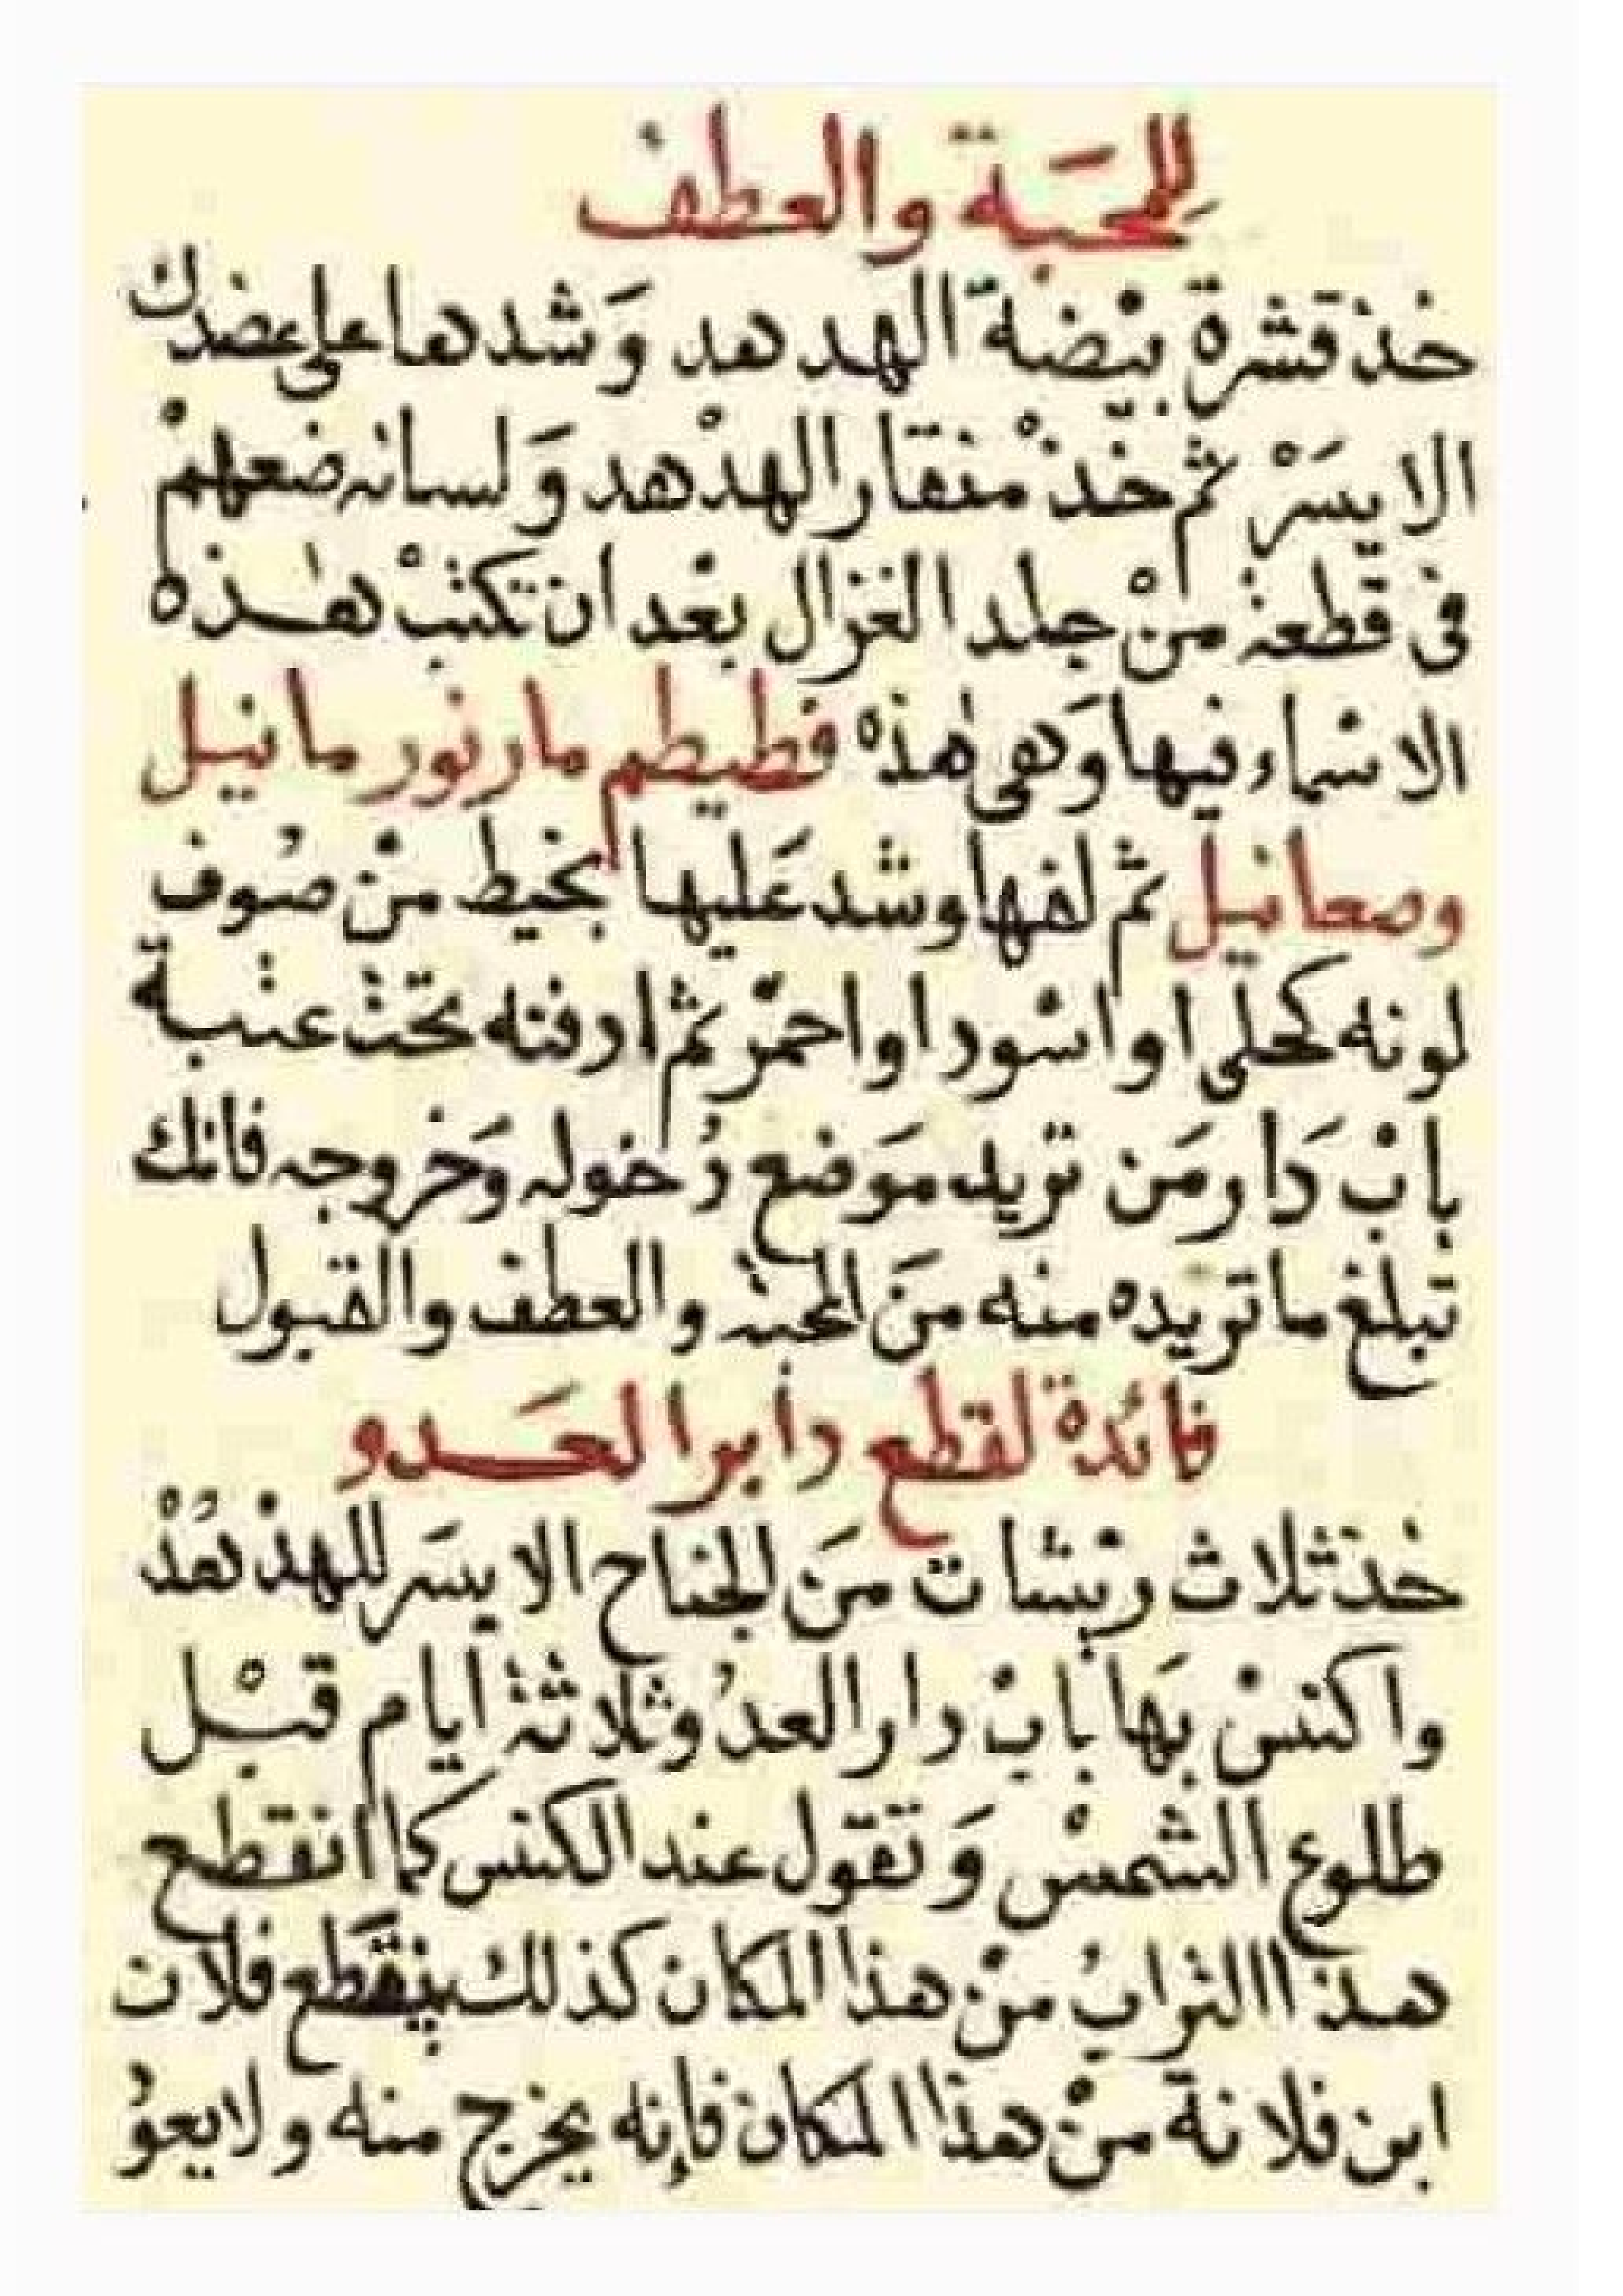 للمحَبة والعطف
خذ قشرة بيْضة الهدهد وَشدها على عضدك
الايسَرْ ثم خذْ منقار الهدْهد وَلسانه ضعهمْ
فى قطعة منْ جلد الغزال بعْد ان تكتبْ هٰذه
الاسْماء فيها وَهى هٰذه فطيطم مارنور مانيل
وصعانيل ثم لفها وشد عَليها بخيط منْ صُوف
لونه كحلى او اسْود او احمْر ثم ادفنه تحتْ عتْبة
بابْ دَار مَن تريد مَوضع دُخوله وَخروجه فانك
تبلغ ما تريده منه منَ المحبة والعطف والقبول
فائدة لقطع دابر العَدو
خذ ثلاث ريْشات منَ الجناح الايسَر للهدْهُدْ
واكنسْ بهَا بابْ دار العدُو ثلاثة ايام قبْل
طلوع الشمسْ وَتقول عند الكنس كما انقطع
هذا التراب منْ هذا المكان كذلك ينقَطع فلان
ابن فلانة منْ هذا المكان فإنه يخرج منه ولا يعوُ